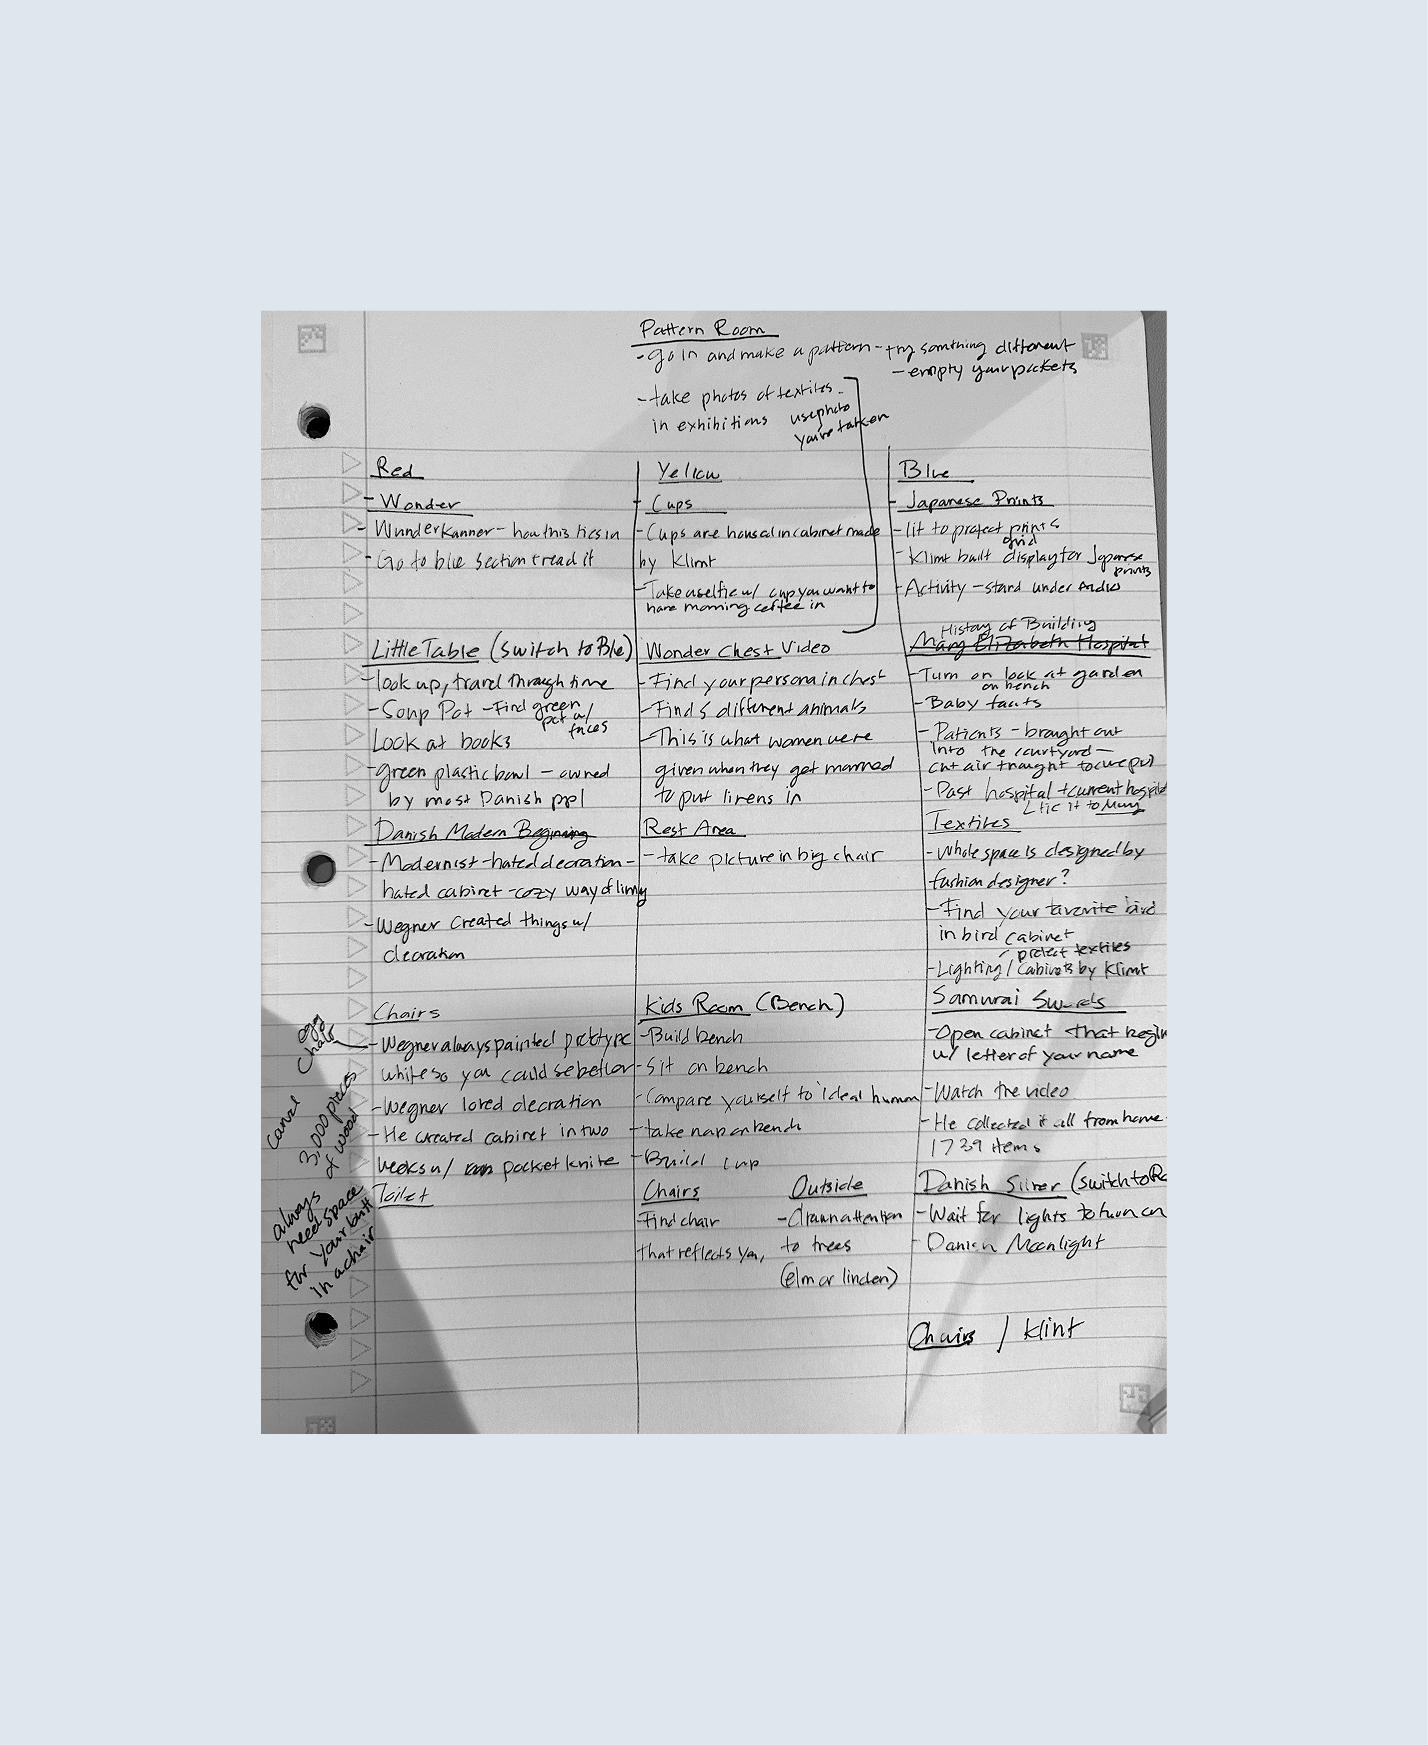 Pattern Room
- go in and make a pattern - try somthing different
- empty your pockets
- take photos of textiles
in exhibitions use photo
you've taken
Red
- Wonder
- Wunderkanner - how this ties in
- Go to blue section + read it
Little Table (switch to Ble)
- look up, travel through time
- Soup Pot - Find green
pot w/
faces
Look at books
- green plastic bowl - owned
by most Danish ppl
Danish Modern Beginning
- Modernist - hated decoration -
hated cabinet - cozy way of living
- Wegner created things w/
decoration
Chairs
egg
chair
- Wegner always painted prototype
white so you could se better
- Wegner loved decoration
- He created cabinet in two
weeks w/ pocket knife
3,000 pieces
of wood
always
need space
for your butt
in a chair
Toilet
Yellow
- Cups
- Cups are housed in cabinet made
by Klimt
- Take a selfie w/ cup you want to
have morning coffee in
Wonder Chest Video
- Find your persona in chest
- Find 5 different animals
- This is what women were
given when they get married
to put linens in
Rest Area
- take picture in big chair
Kids Room (Bench)
- Build bench
- Sit on bench
- Compare yourself to ideal human
- take nap on bench
- Build cup
Chairs
Find chair
that reflects you,
Outside
- Drawn attention
to trees
(elm or linden)
Blue
- Japanese Prints
- lit to protect prints
grid
- Klimt built display for Japanese
prints
- Activity - stand under audio
History of Building
Mary Elizabeth Hospital
- Turn on look at garden
on bench
- Baby facts
- Patients - brought out
into the courtyard -
air thought to cure ppl
- Past hospital + current hospital
tie it to Mary
Textiles
- Whole space is designed by
fashion designer?
- Find your favorite bird
in bird cabinet
protect textiles
- Lighting / Cabinets by Klimt
Samurai Swords
- Open cabinet that begin
w/ letter of your name
- Watch the video
- He collected it all from home
1739 items
Danish Silver (switch to Re
- Wait for lights to turn on
- Danish Moonlight
Chairs / Klint